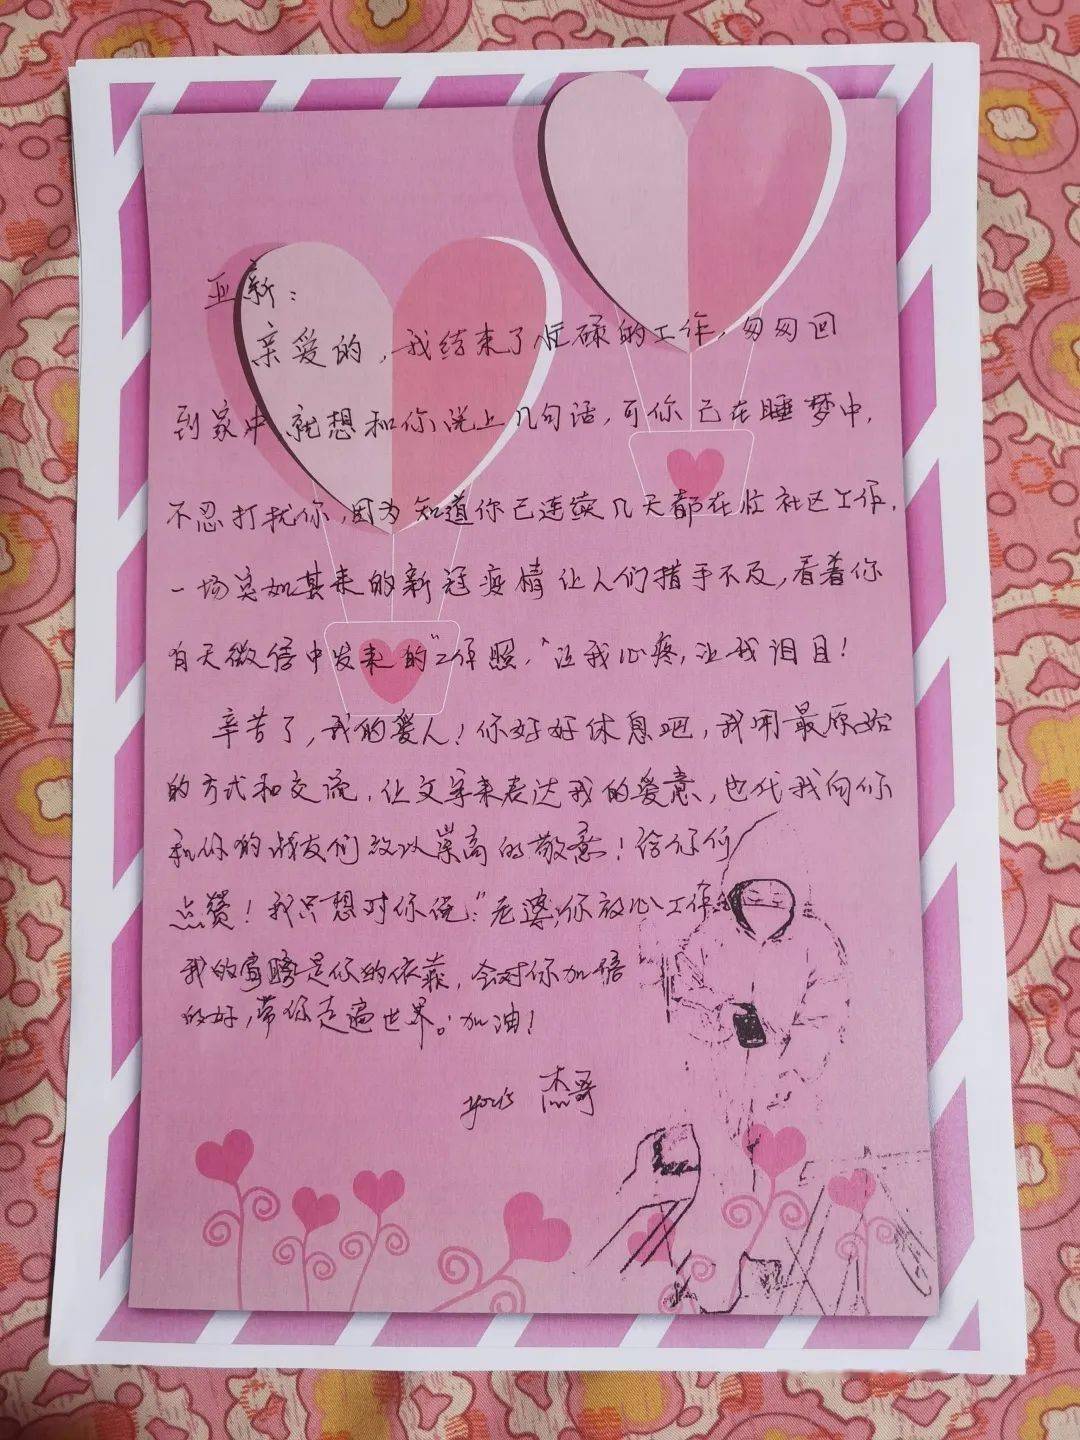 亚新：
亲爱的，我结束了忙碌的工作，匆匆回
到家中就想和你说上几句话，可你已在睡梦中，
不忍打扰你，因为知道你已连续几天都在忙社区工作。
一场突如其来的新冠疫情让人们措手不及，看着你
白天微信中发来的"工作照，"让我心疼，让我泪目！
辛苦了，我的爱人！你好好休息吧，我用最原始
的方式和交流，让文字来表达我的爱意，也代我向你
和你的战友们致以崇高的敬意！给你们
点赞！我只想对你说："老婆，你放心工作
我的肩膀是你的依靠，会对你加倍
的好，带你走遍世界。加油！
yours 杰哥